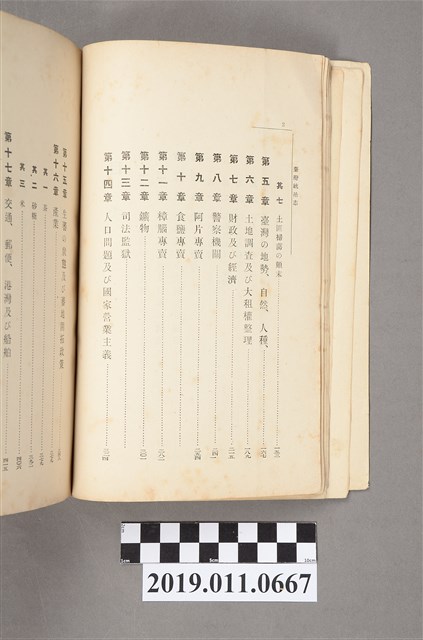 臺灣統治志
二
其七 土匪掃蕩の顛末
第五章 臺灣の地勢、自然、人種、
第六章 土地調査及び大租權整理
第七章 財政及び經濟
第八章 警察機關
第九章 阿片專賣
第十章 食鹽專賣
第十一章 樟腦專賣
第十二章 鑛物
第十三章 司法監獄
第十四章 人口問題及び國家營業主義
第十五章 生蕃の狀態及び蕃地開拓政策
第十六章 產業
其一 茶
其二 砂糖
其三 米
第十七章 交通、郵便、港灣及び船舶
2019.011.0667
1cm
5cm
10cm